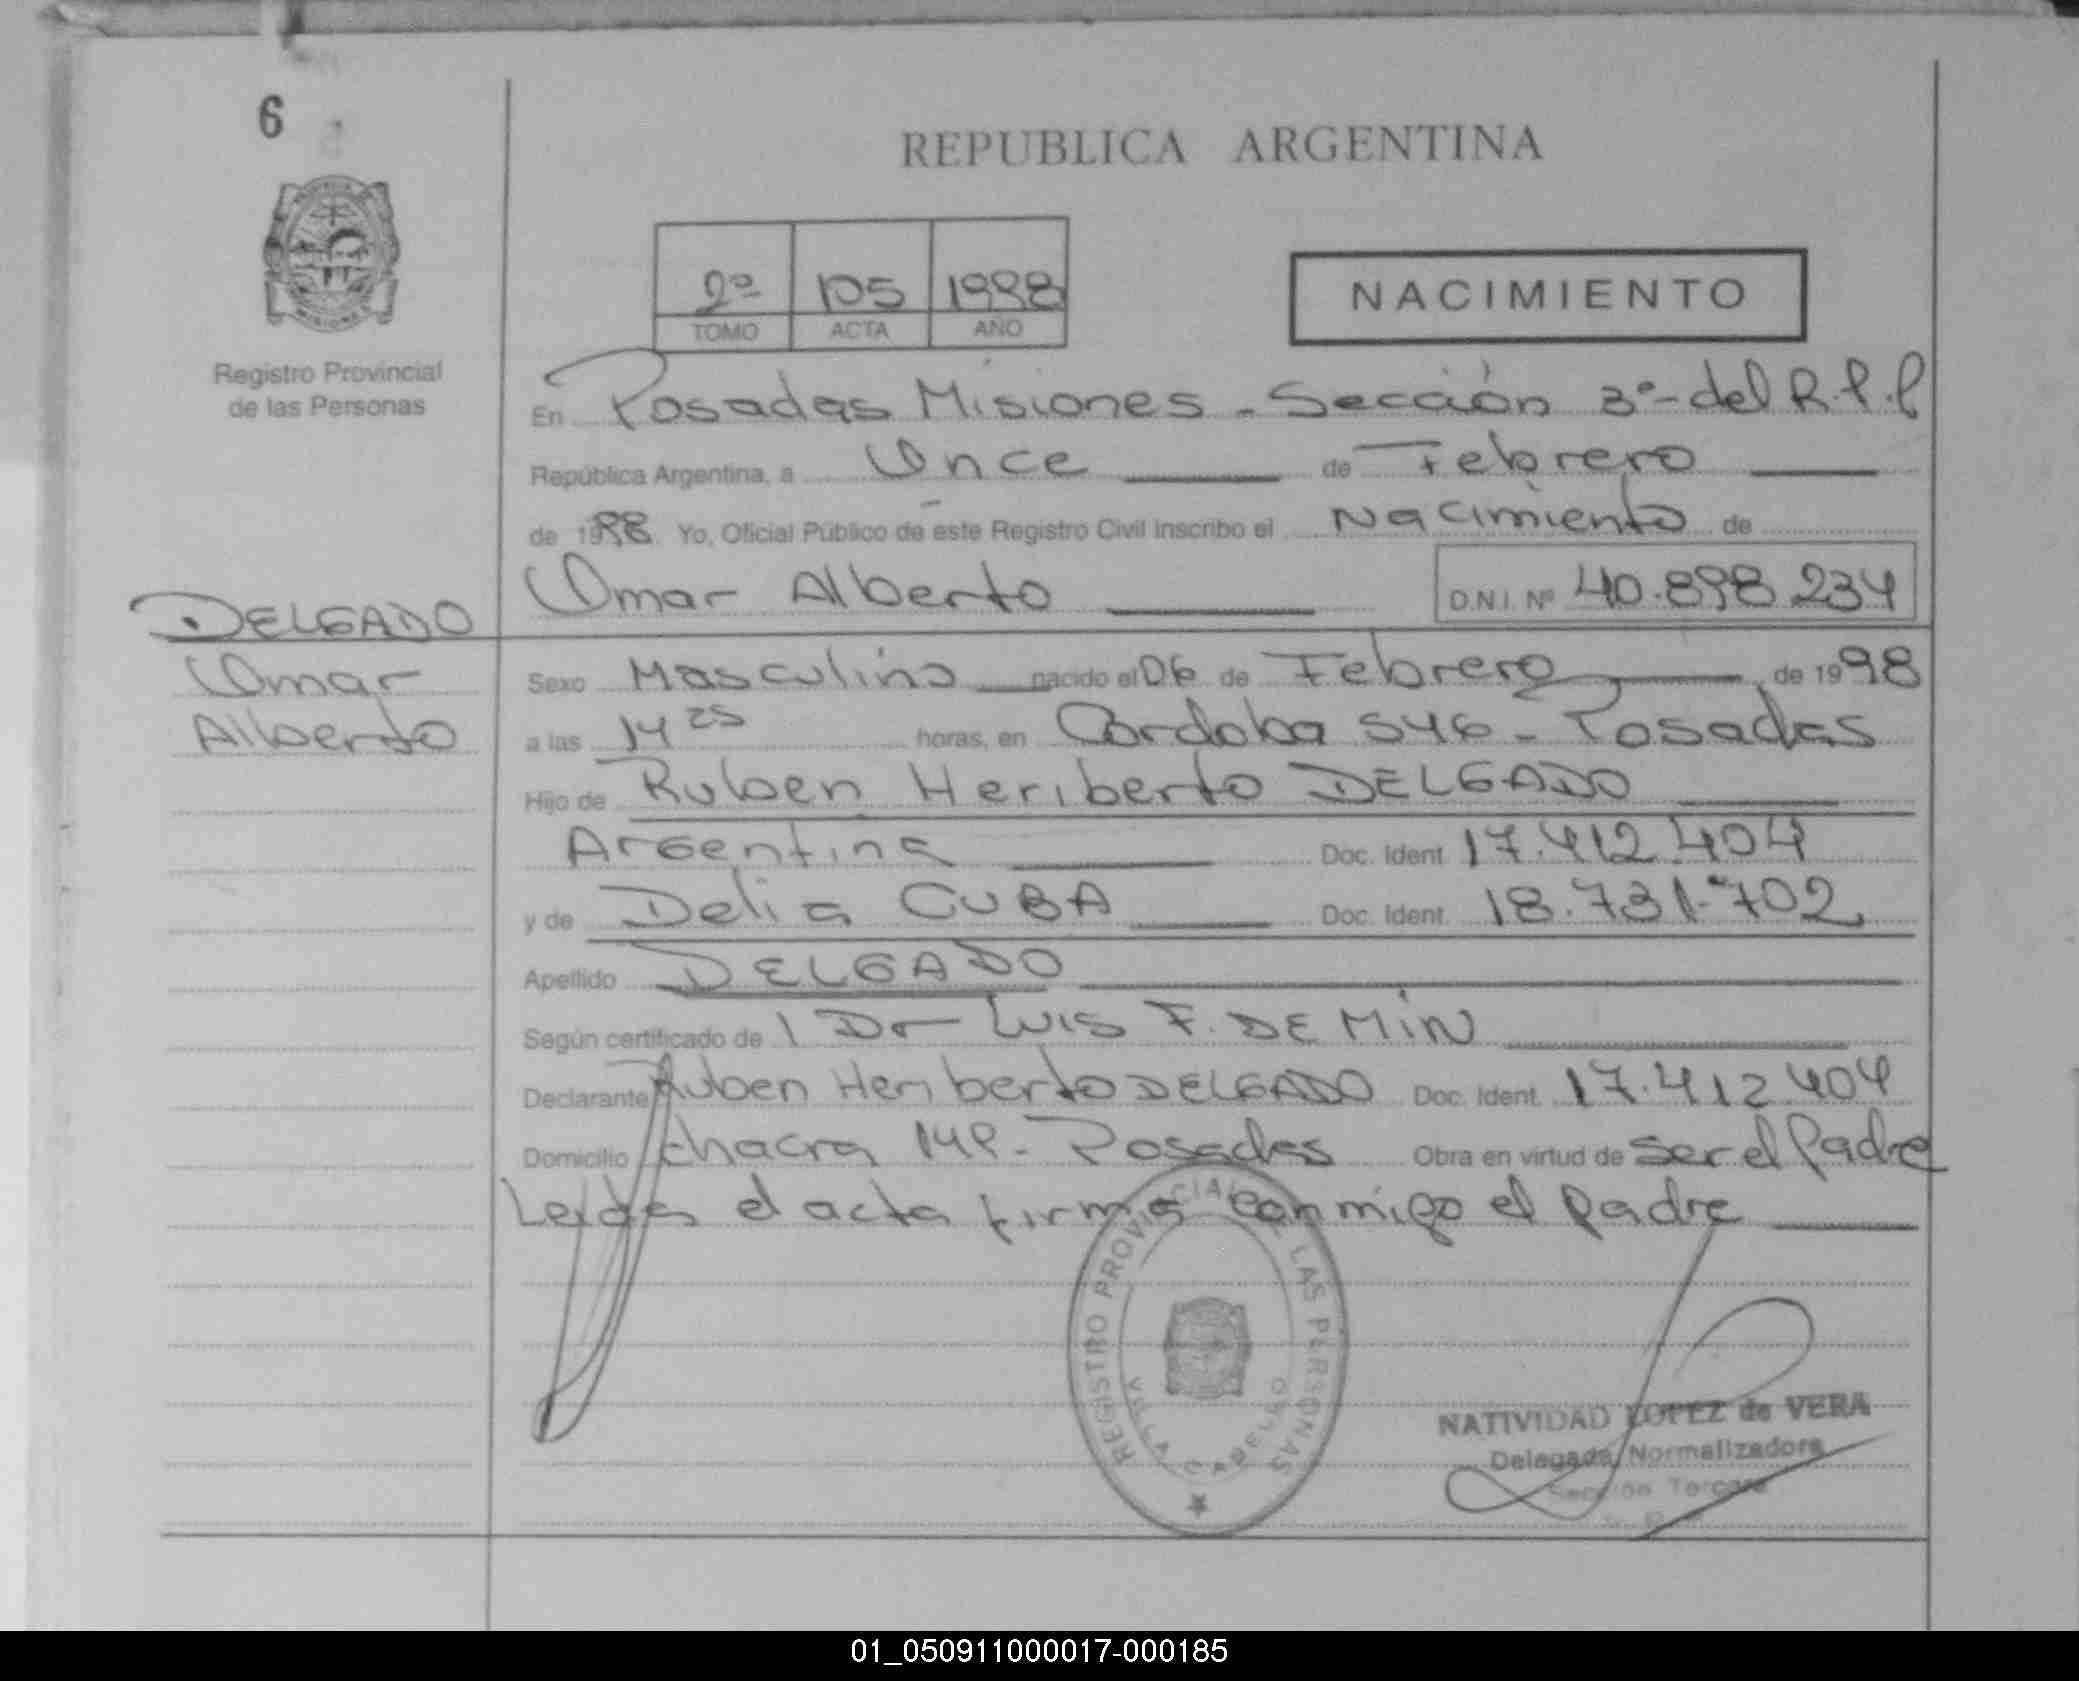 6
REPUBLICA ARGENTINA
2º 105 1998
TOMO ACTA AÑO
NACIMIENTO
Registro Provincial
de las Personas
En Posadas Misiones - Sección 3º- del R.P.P
República Argentina, a Once de Febrero
de 1998. Yo, Oficial Público de este Registro Civil inscribo el Nacimiento de
Omar Alberto D.N.I. Nº 40.898.234
DELGADO
Omar
Alberto
Sexo Masculino nacido el 06 de Febrero de 1998
a las 14 25 horas, en Cordoba 546 - Posadas
Hijo de Ruben Heriberto DELGADO
Argentina Doc. Ident. 17.412.404
y de Delia CUBA Doc. Ident. 18.731.702
Apellido DELGADO
Según certificado de l Dr Luis F. DE MIN
Declarante Ruben Heriberto DELGADO Doc. Ident. 17.412.404
Domicilio Chacra - Posadas Obra en virtud de ser el Padre
Leida el acta firma conmigo el padre
REGISTRO PROVINCIAL DE LAS PERSONAS
VILLA CABELLO
NATIVIDAD LOPEZ de VERA
Delegada Normalizadora
Sección Tercera
01_050911000017-000185